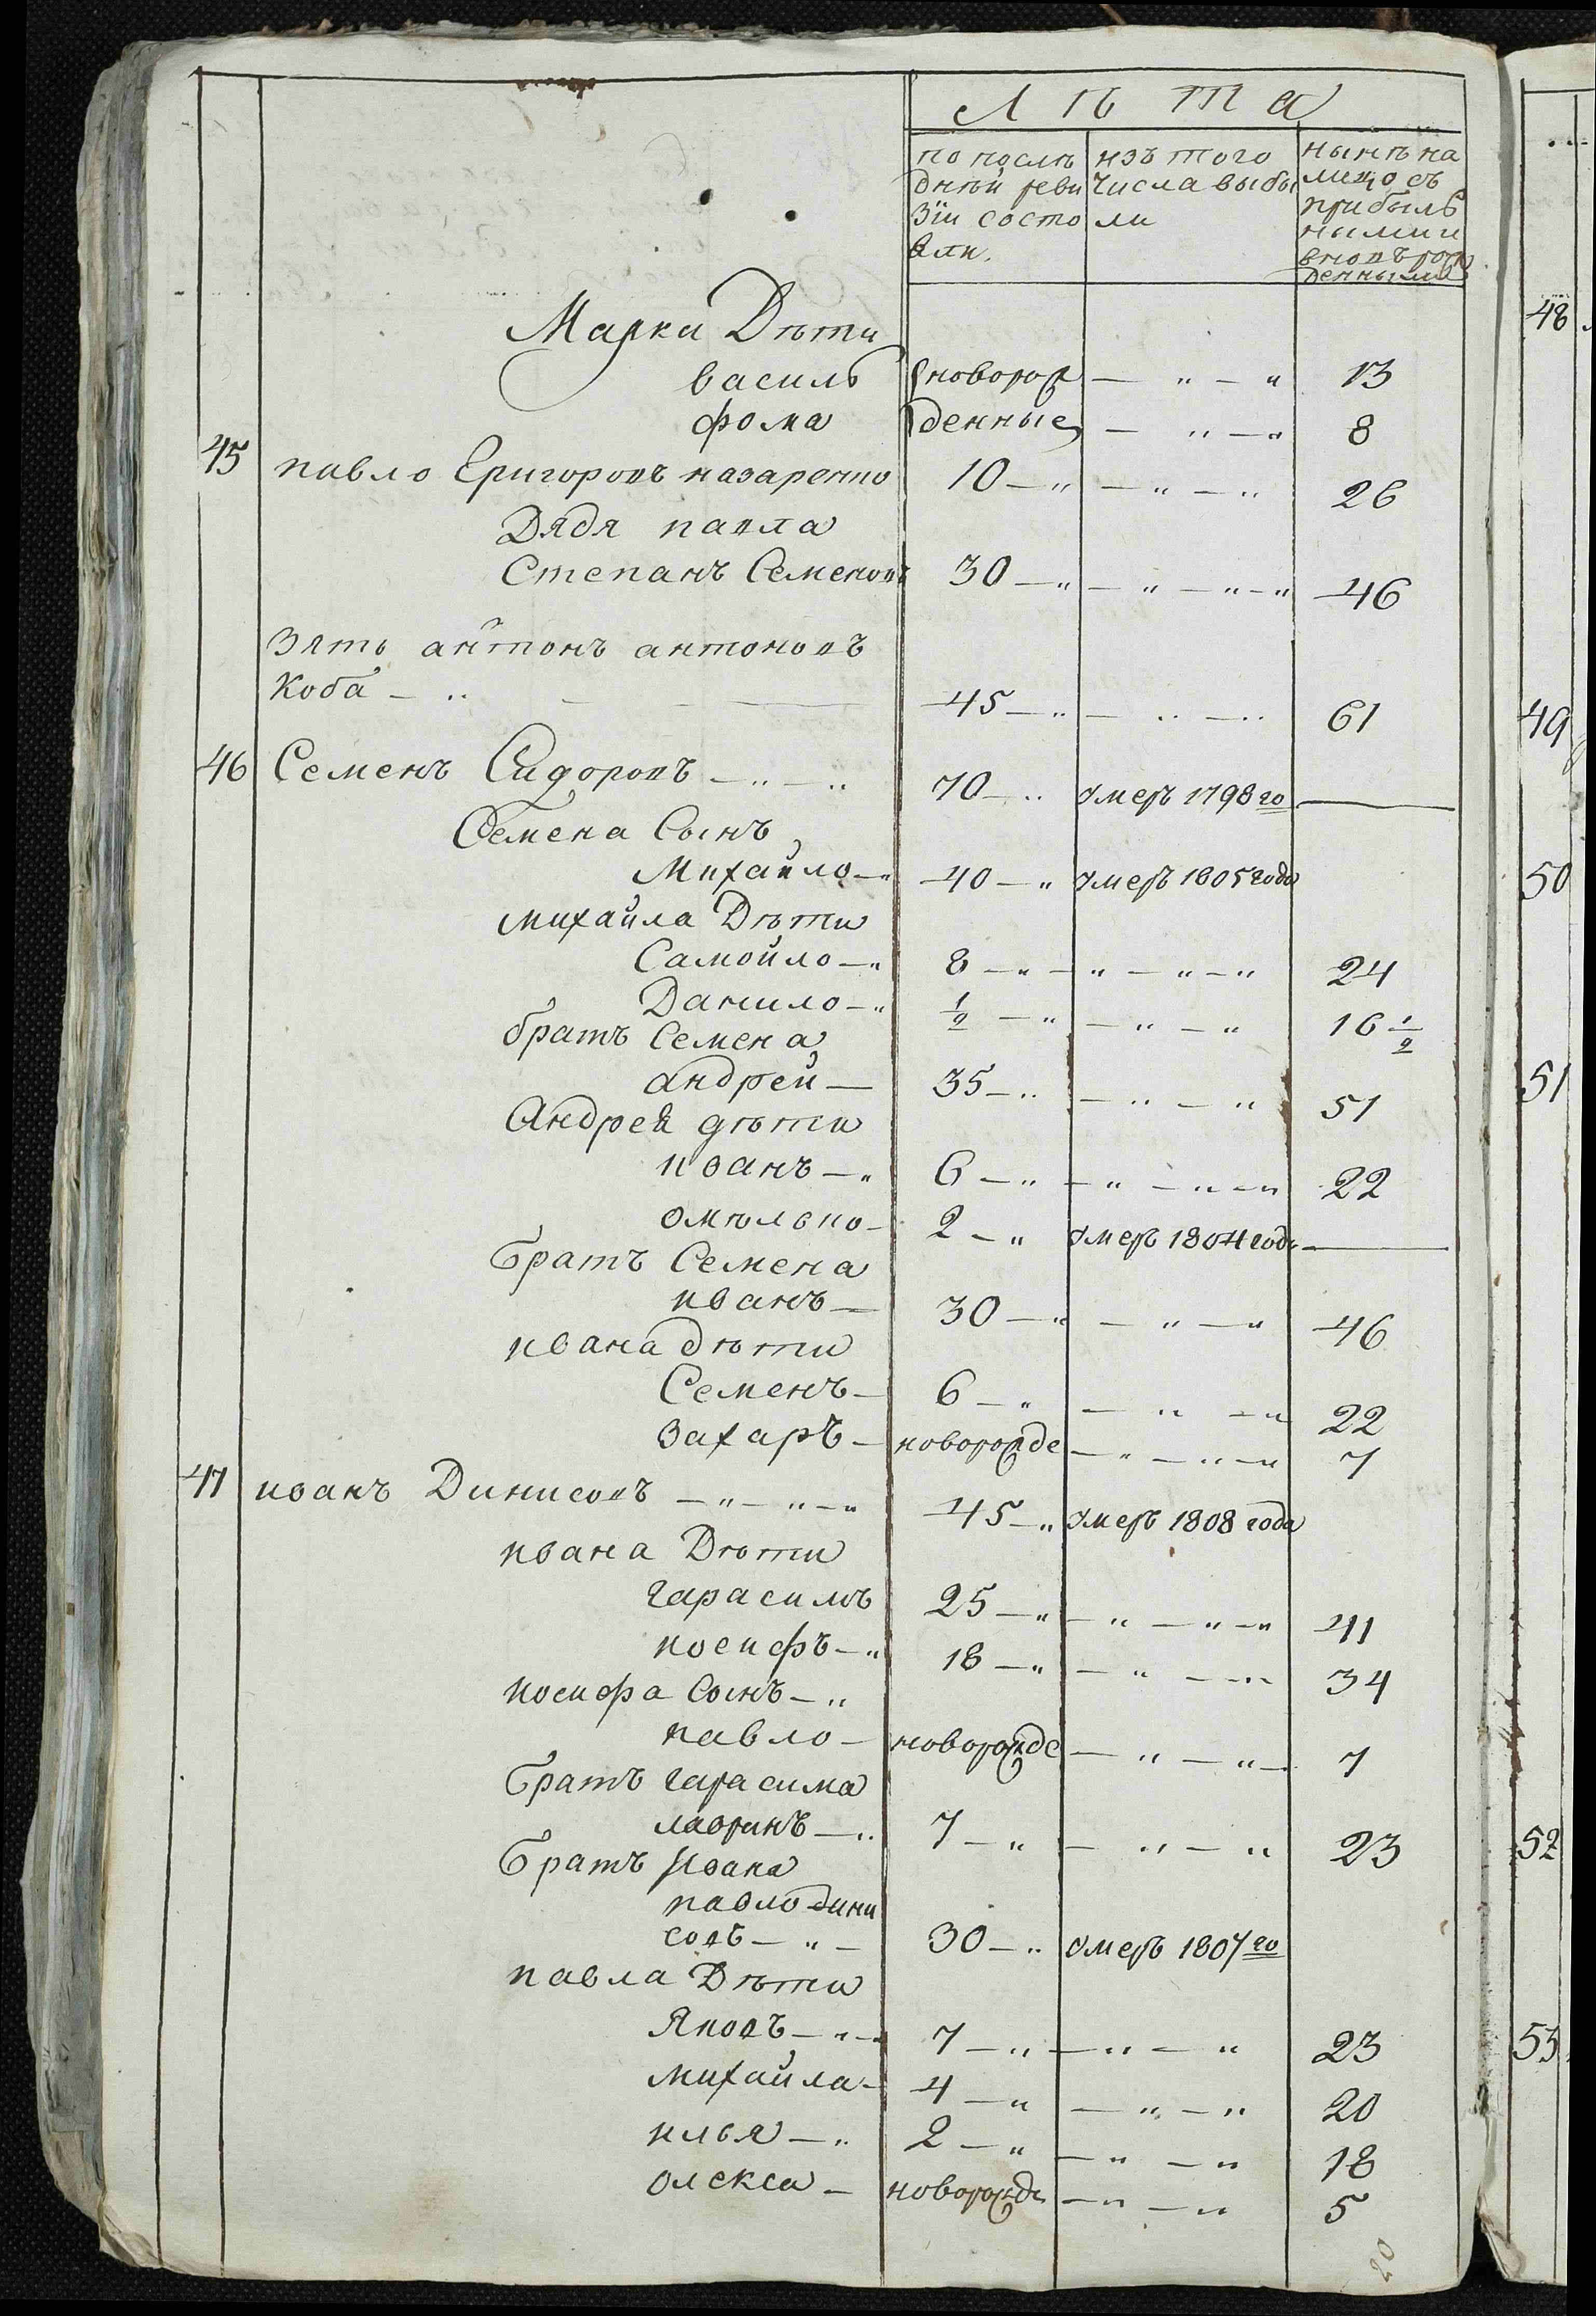 Лѣта
по послѣ изъ того нынѣ на
дней реви числа выбы лицо съ
зіи состо ли прибыль
яли. ными и
вновь рож
денными
Марка Дѣти
василь новорож — „ — „ 13
фома денные — „ — „ 8
45 павло Григоровъ назаренко 10 — „ — „ — „ 26
Дядя павла
Степанъ Семеновъ 30 — „ — „ — „ — „ 46
Зять антонъ антоновъ
Коба — „ 45 — „ — „ — „ 61
46 Семенъ Сидоровъ — „ — „ 70 — „ умеръ 1798 го —
Семена Сынъ
Михайло — „ 40 — „ умеръ 1805 года
михайла Дѣти
Самойло — „ 8 — „ — „ — „ — „ 24
Данило — „ 1/2 — „ — „ — „ 16 1/2
братъ Семена
андрей — 35 — „ — „ — „ 51
Андрея дѣти
иванъ — „ 6 — „ — „ — „ — „ 22
омѣлько — 2 — „ умеръ 1804 годъ —
Братъ Семена
иванъ — 30 — „ — „ — „ 46
ивана дѣти
Семенъ — 6 — „ — „ — „ 22
захаръ — новорожде — „ — „ — „ 7
47 иванъ Динисовъ — „ — „ — „ 45 — „ умеръ 1808 года
ивана Дѣти
гарасимъ 25 — „ — „ — „ — „ 41
иосифъ — „ 18 — „ — „ — „ 34
иосифа Сынъ — „
павло — новорожде — „ — „ — 7
Братъ гарасима
лавринъ — „ 7 — „ — „ — „ 23
Братъ Ивана
павло дини
совъ — „ — 30 — „ умеръ 1807 го
павла Дѣти
Яковъ — „ — 7 — „ — „ — „ 23
михайла — 4 — „ — „ — „ 20
илья — „ 2 — „ — „ — „ 18
олекса — новорожде — „ — „ 5
20
48
49
50
51
52
53